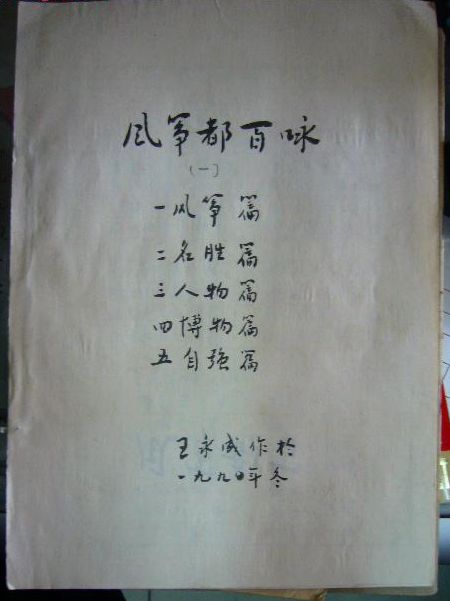 风筝都百咏
(一)
一风筝篇
二名胜篇
三人物篇
四博物篇
五自强篇
王永成作於
一九九〇年冬